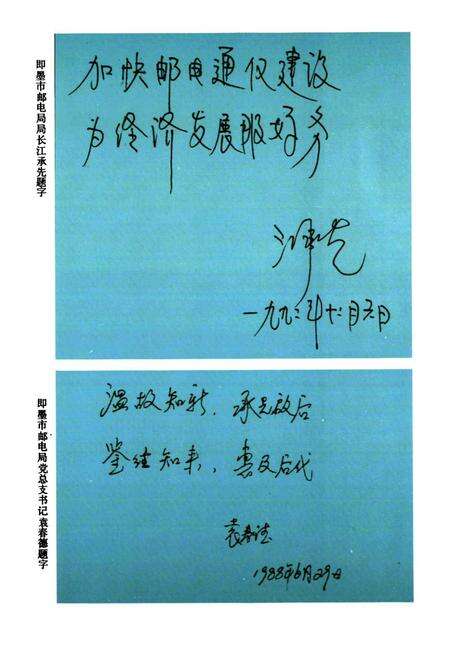 即墨市邮电局局长江承先题字
加快邮电通仪建设
为经济发展服好务
江承先
一九九二年十二月六日
即墨市邮电局党总支书记袁春德题字
温故知新，承先启后
鉴往知来，惠及后代
袁春德
1988年6月29日